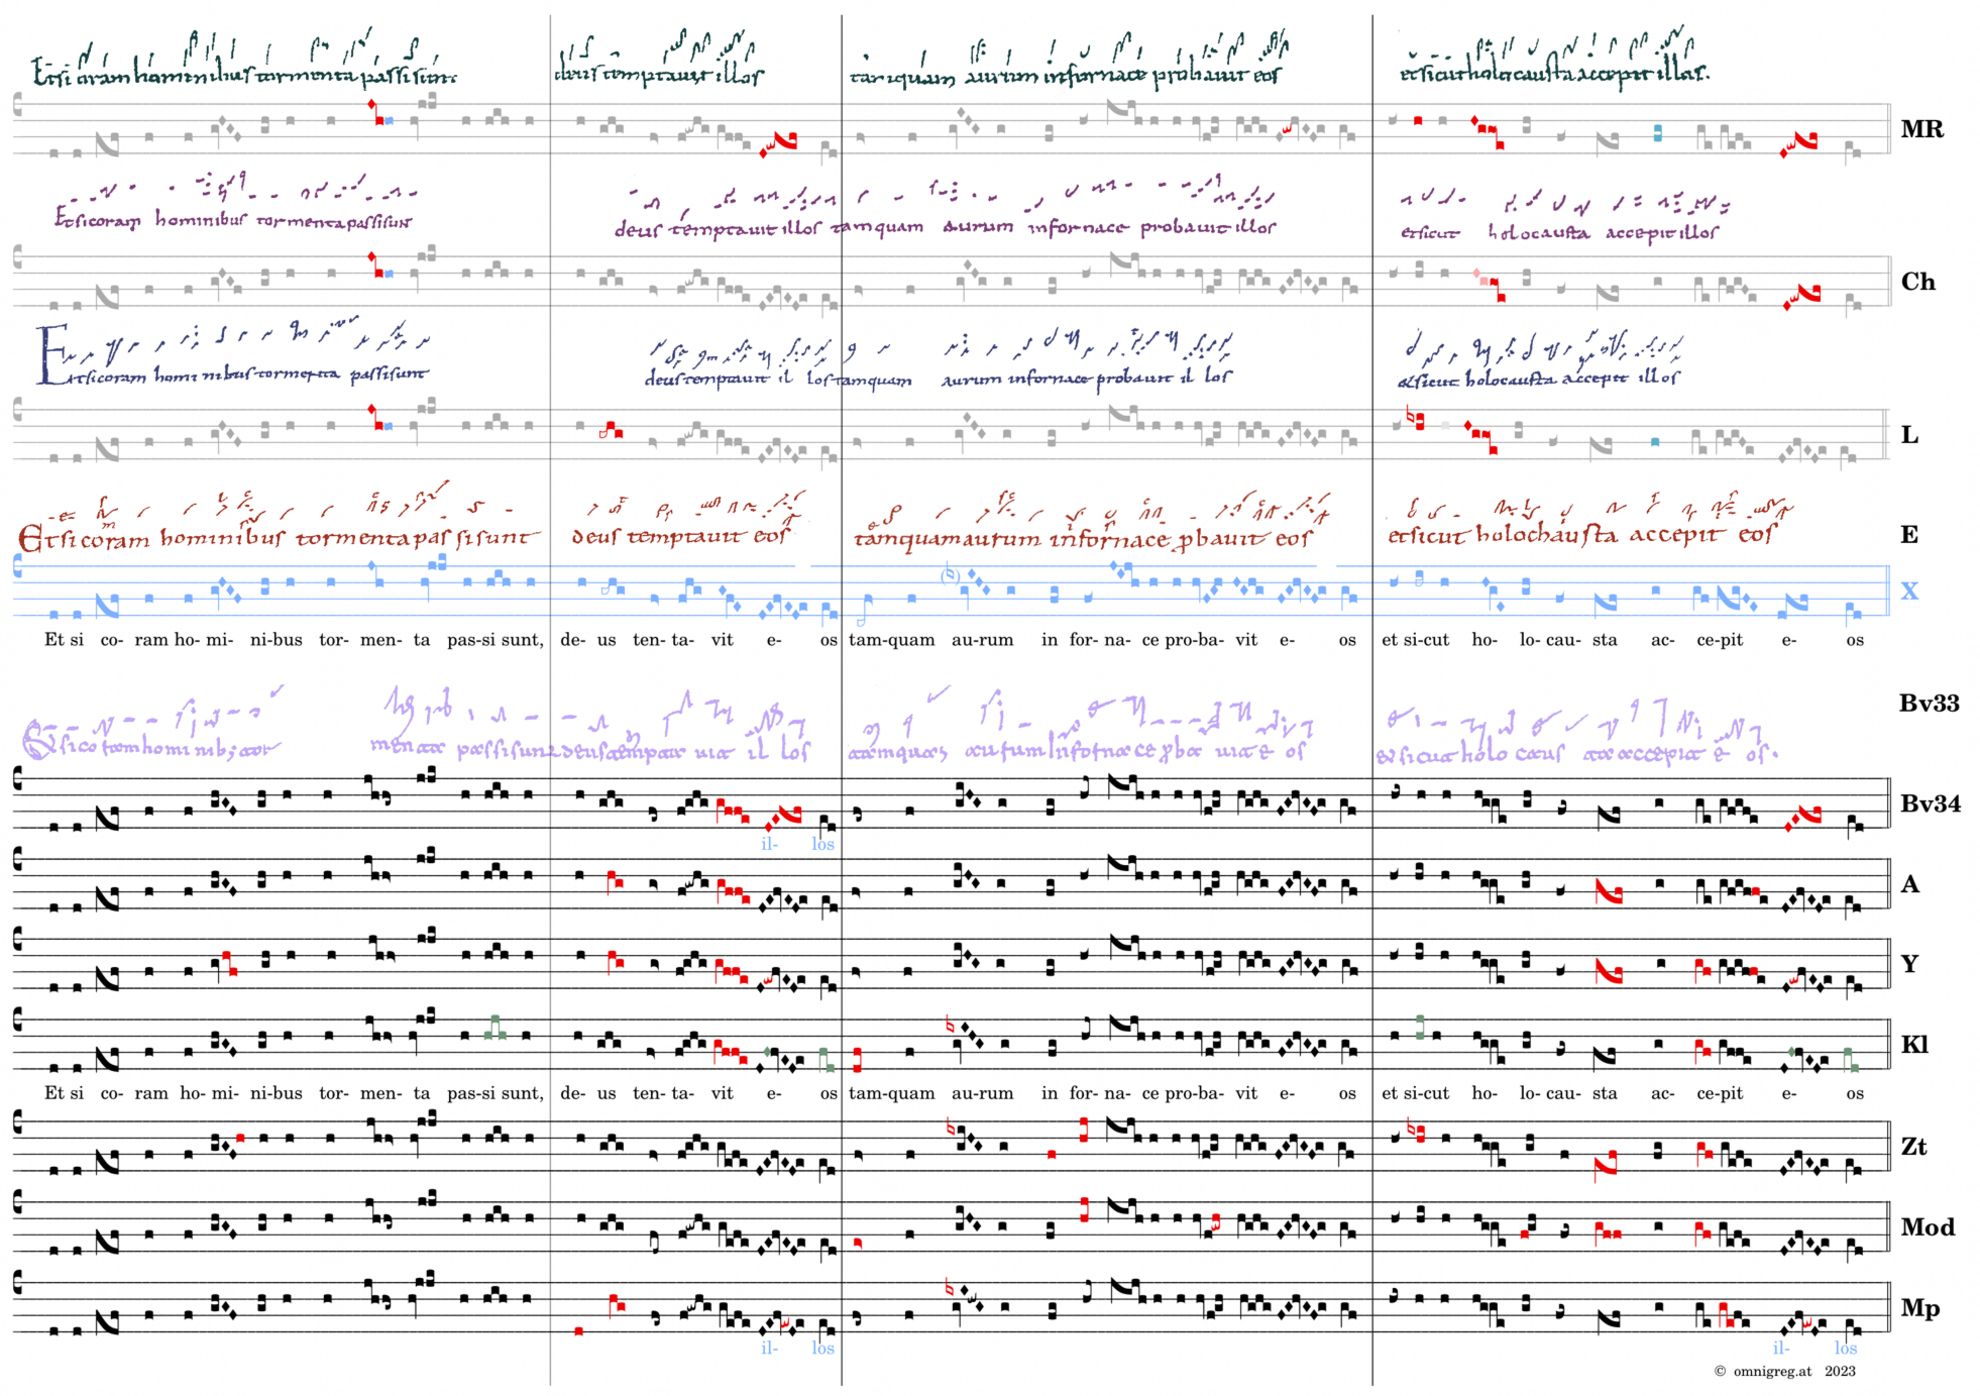 Etsi coram hominibus tormenta passi sunt deus temptauit illos tamquam aurum in fornace probauit eos et sicut holocausta accepit illos.
MR
Etsi coram hominibus tormenta passi sunt deus temptauit illos tamquam aurum in fornace probauit illos et sicut holocausta accepit illos
Ch
Etsi coram hominibus tormenta passi sunt deus temptauit il los tamquam aurum in fornace probauit il los et sicut holocausta accepit illos
L
Etsi coram hominibus tormenta passi sunt deus temptauit eos tamquam aurum in fornace pbauit eos et sicut holochausta accepit eos
E
X
Et si co- ram ho- mi- ni-bus tor- men- ta pas-si sunt, de- us ten- ta- vit e- os tam-quam au-rum in for- na- ce pro-ba- vit e- os et si-cut ho- lo- cau- sta ac- ce-pit e- os
Bv33
Bv34
il- los
A
Y
Kl
Et si co- ram ho- mi- ni-bus tor- men- ta pas-si sunt, de- us ten- ta- vit e- os tam-quam au-rum in for- na- ce pro-ba- vit e- os et si-cut ho- lo- cau- sta ac- ce-pit e- os
Zt
Mod
Mp
il- los il- los
© omnigreg.at 2023